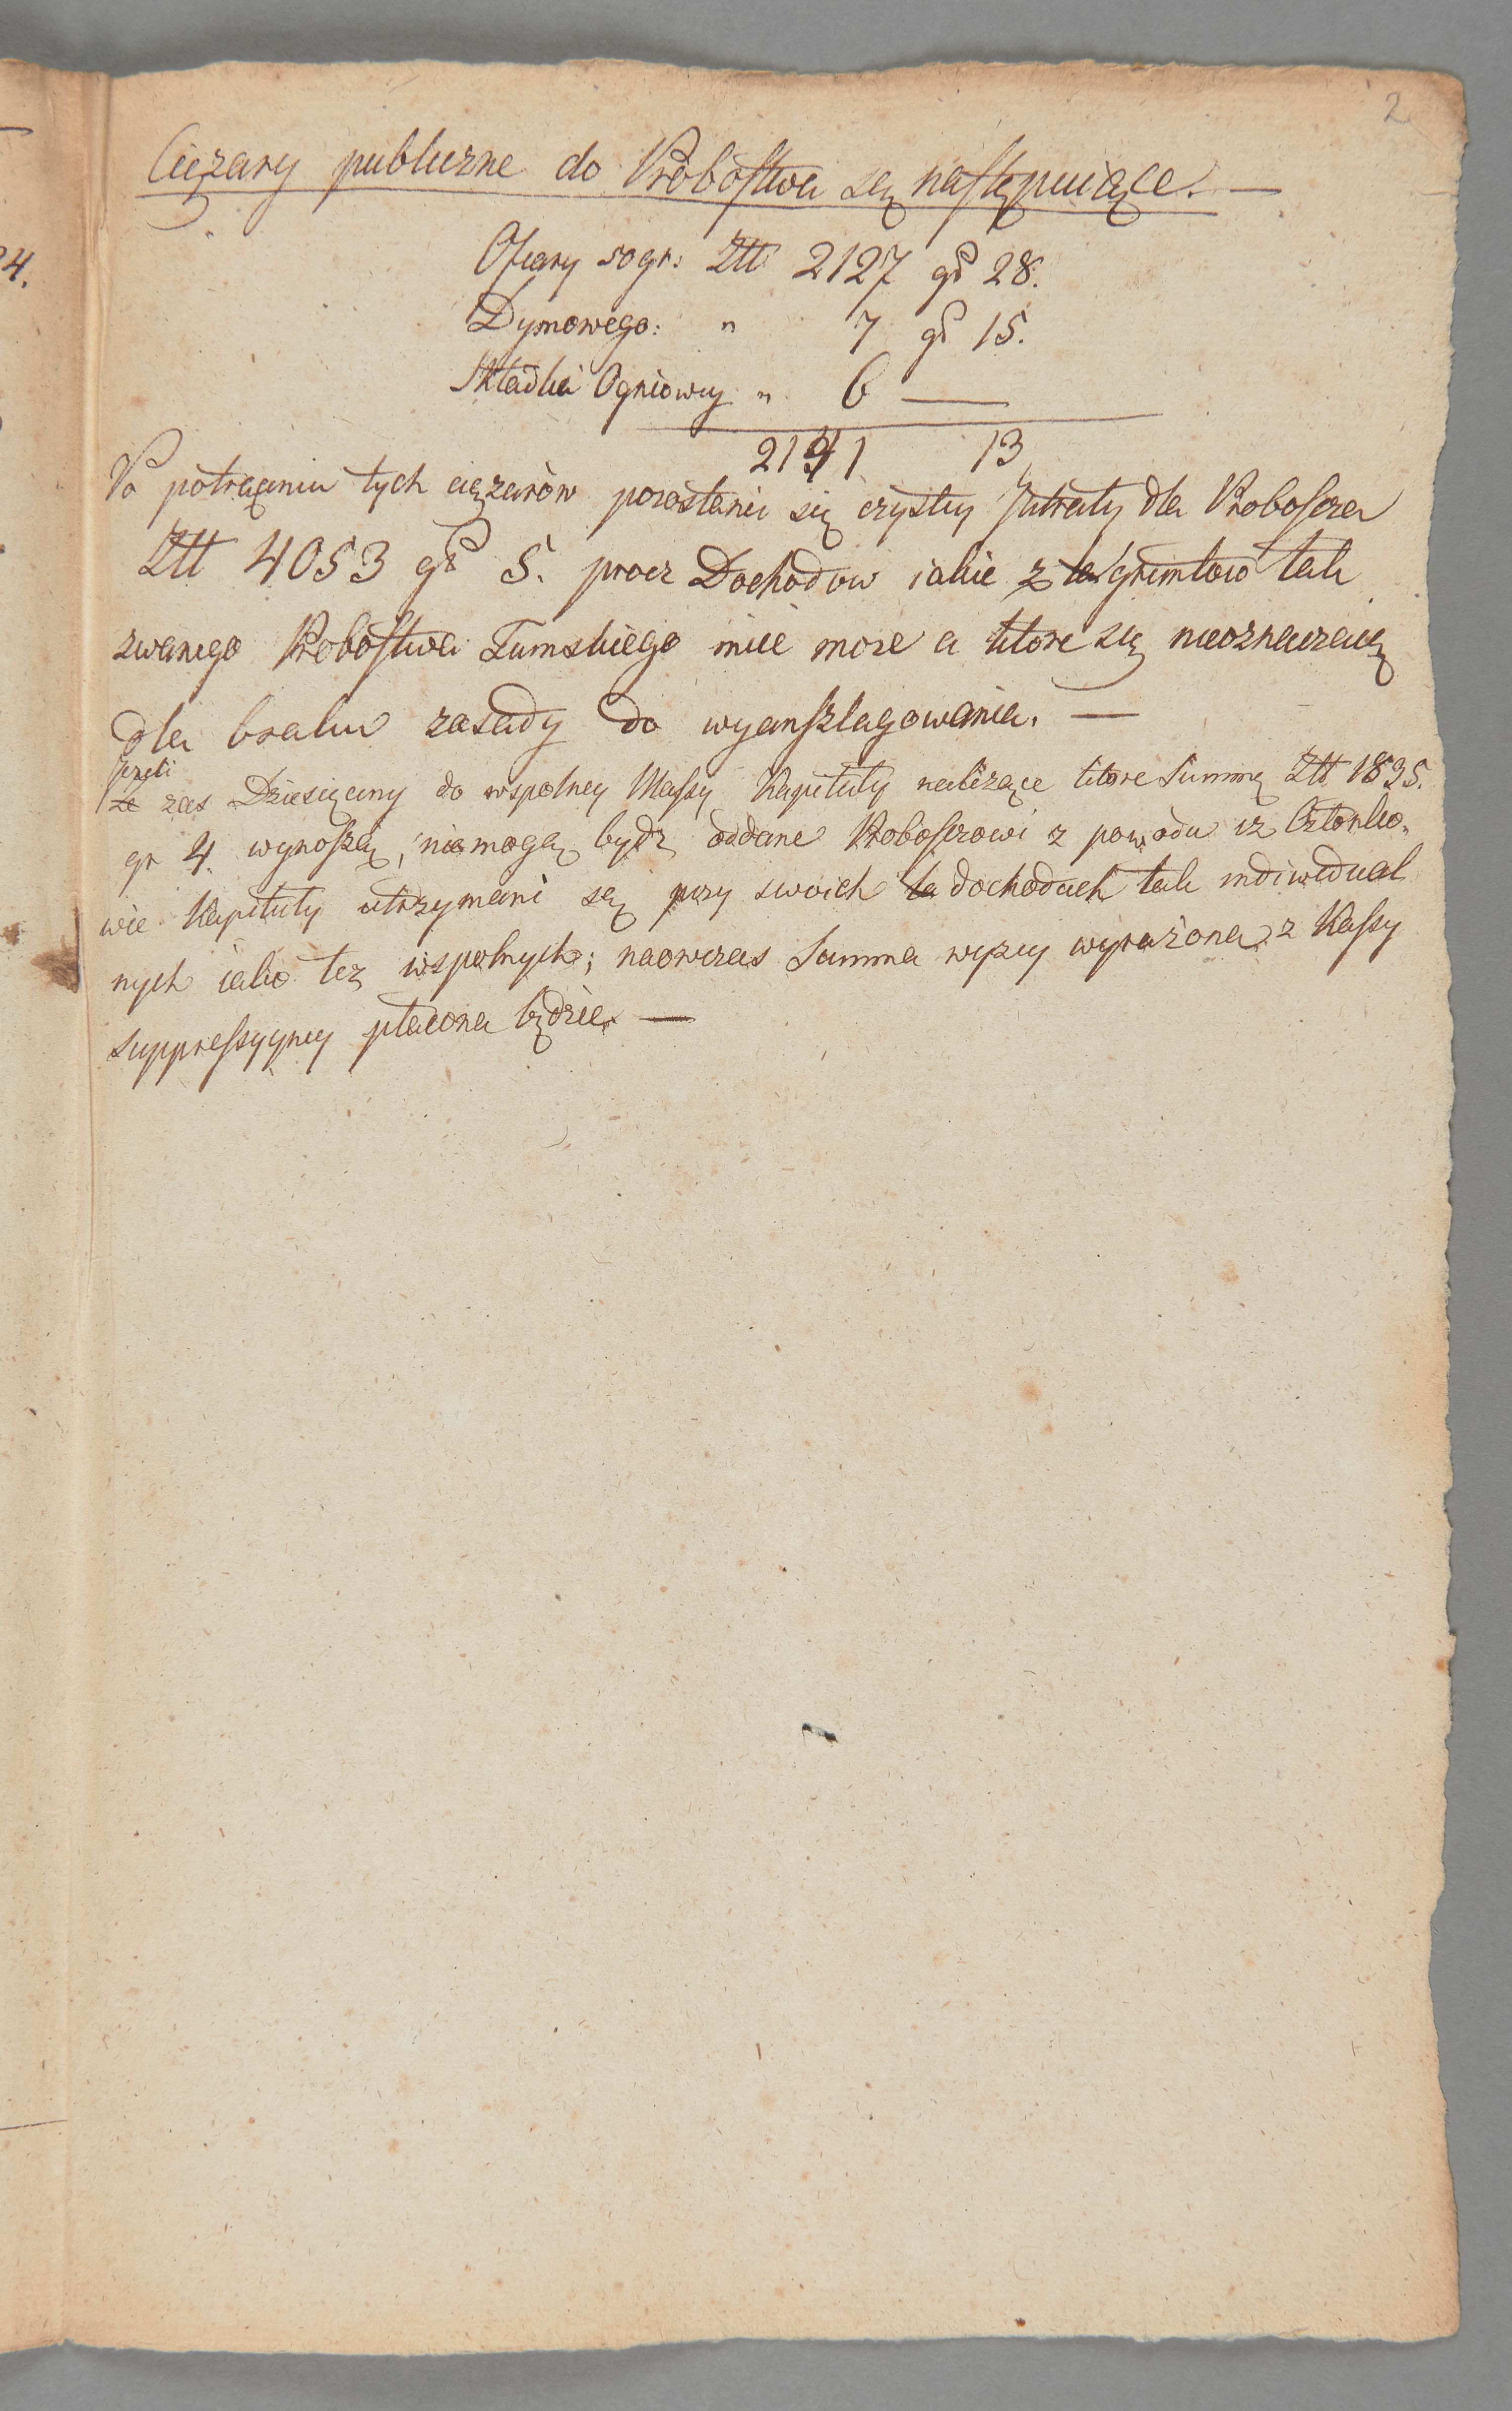 2
24.
Cięzary publiczne do Probostwa są następuiące. —
Ofiary 50 gr: Złł 2127 gr 28.
Dymowego: " 7 gr 15.
Składki Ogniowey " 6 —
2141 13
Po potrąceniu tych cięzarów pozostanie się czystey Intraty dla Proboscza
Złł 4053 gr 5. procz Dochodow iakie z gruntow tak
zwanego Probostwa Tumskiego miec moze a ktore się nieoznaczaią
dla braku zasady do wyanszlagowania. —
Jezeli
ze zas Dziesięciny do wspolney Massy Kapituły nalezące ktore Summę Złł 1835.
gr 4. wynoszą, niemogą bydz oddane Proboszczowi z powodu iz Członko-
wie Kapituły utrzymani są przy swoich dochodach tak individual
nych iako tez wspolnych; naowczas Summa wyzey wyrażona z Kassy
suppressyyney płacona będzie. —